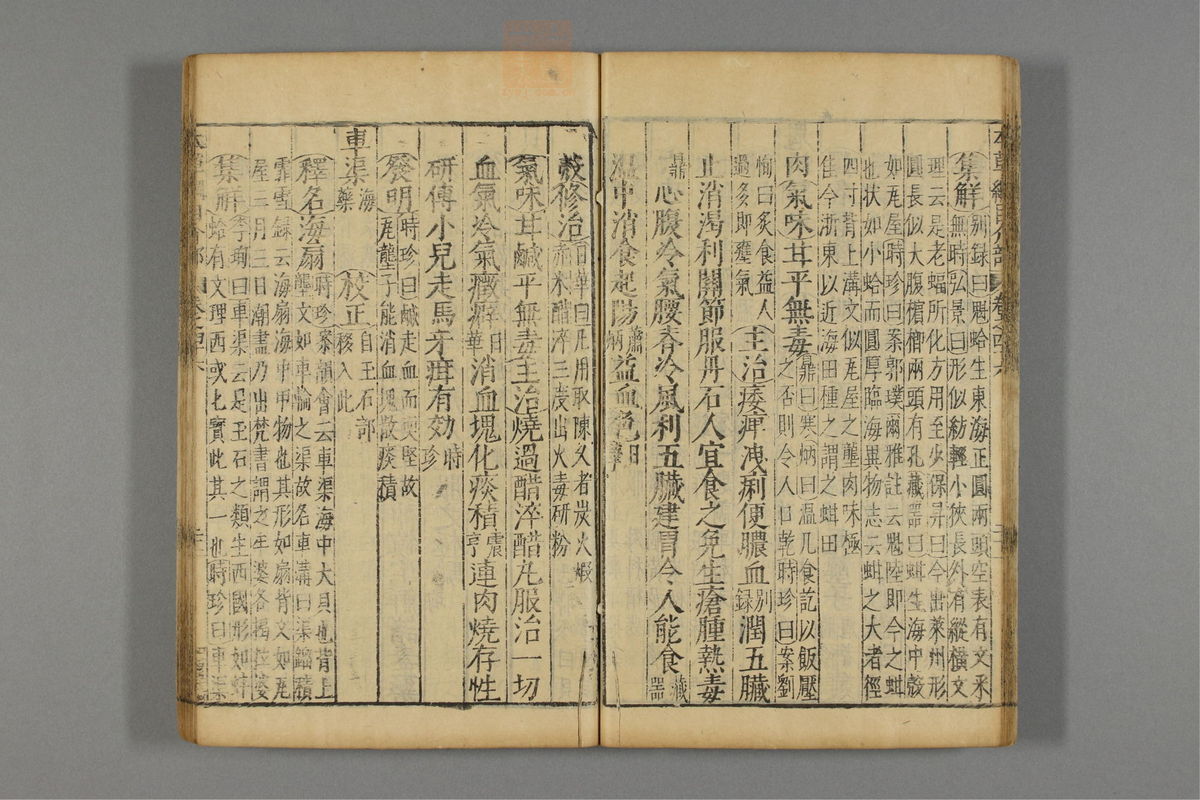 集解別錄曰魁蛤生東海正圓兩頭空表有文采
無時弘景曰形似紡輕小狹長外有縱橫文
理云是老蝠所化方用至少保昇曰今出萊州形
圓長似大腹檳榔兩頭有孔藏器曰蚶生海中殼
如瓦屋時珍曰案郭璞爾雅註云魁陸即今之蚶
也狀如小蛤而圓厚臨海異物志云蚶之大者徑
四寸背上溝文似瓦屋之壟肉味極
佳今浙東以近海田種之謂之蚶田
肉氣味甘平無毒鼎曰寒炳曰溫凡食訖以飯壓
之否則令人口乾時珍曰案劉
恂曰炙食益人
過多即壅氣主治痿痺洩痢便膿血別錄潤五臟
止消渴利關節服丹石人宜食之免生瘡腫熱毒
鼎心腹冷氣腰脊冷風利五臟建胃令人能食藏器
溫中消食起陽蕭炳益血色日華
殼修治日華曰凡用取陳久者炭火煅
赤米醋淬三度出火毒研粉
氣味甘鹹平無毒主治燒過醋淬醋丸服治一切
血氣冷氣癥癖日華消血塊化痰積震亨連肉燒存性
研傅小兒走馬牙疳有効時珍
發明時珍曰鹹走血而耎堅故
瓦壟子能消血塊散痰積
車渠海藥校正自玉石部
移入此
釋名海扇時珍案韻會云車渠海中大貝也背上
壟文如車輪之渠故名車溝曰渠劉績
霏雪録云海扇海中甲物也其形如扇背文如瓦
屋三月三日潮盡乃出梵書謂之牟婆洛揭拉婆
集解李珣曰車渠云是玉石之類生西國形如蚌
蛤有文理西域七寶此其一也時珍曰車渠